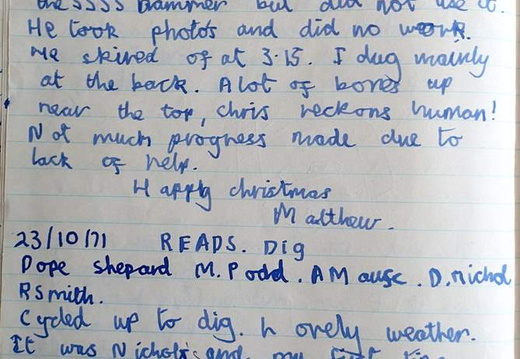 hammer but did not use it.
He took photos and did no work.
He skived of at 3.15. I dug mainly
at the back. A lot of bones up
near the top, chris reckons human!
Not much progress made due to
lack of help.
Happy christmas
Matthew.
23/10/71 READS. Dig
Dope shepard M. Podd. A Mausc. D. Nichol
R Smith.
Cycled up to dig. Lovely weather.
It was Nichols and my first time